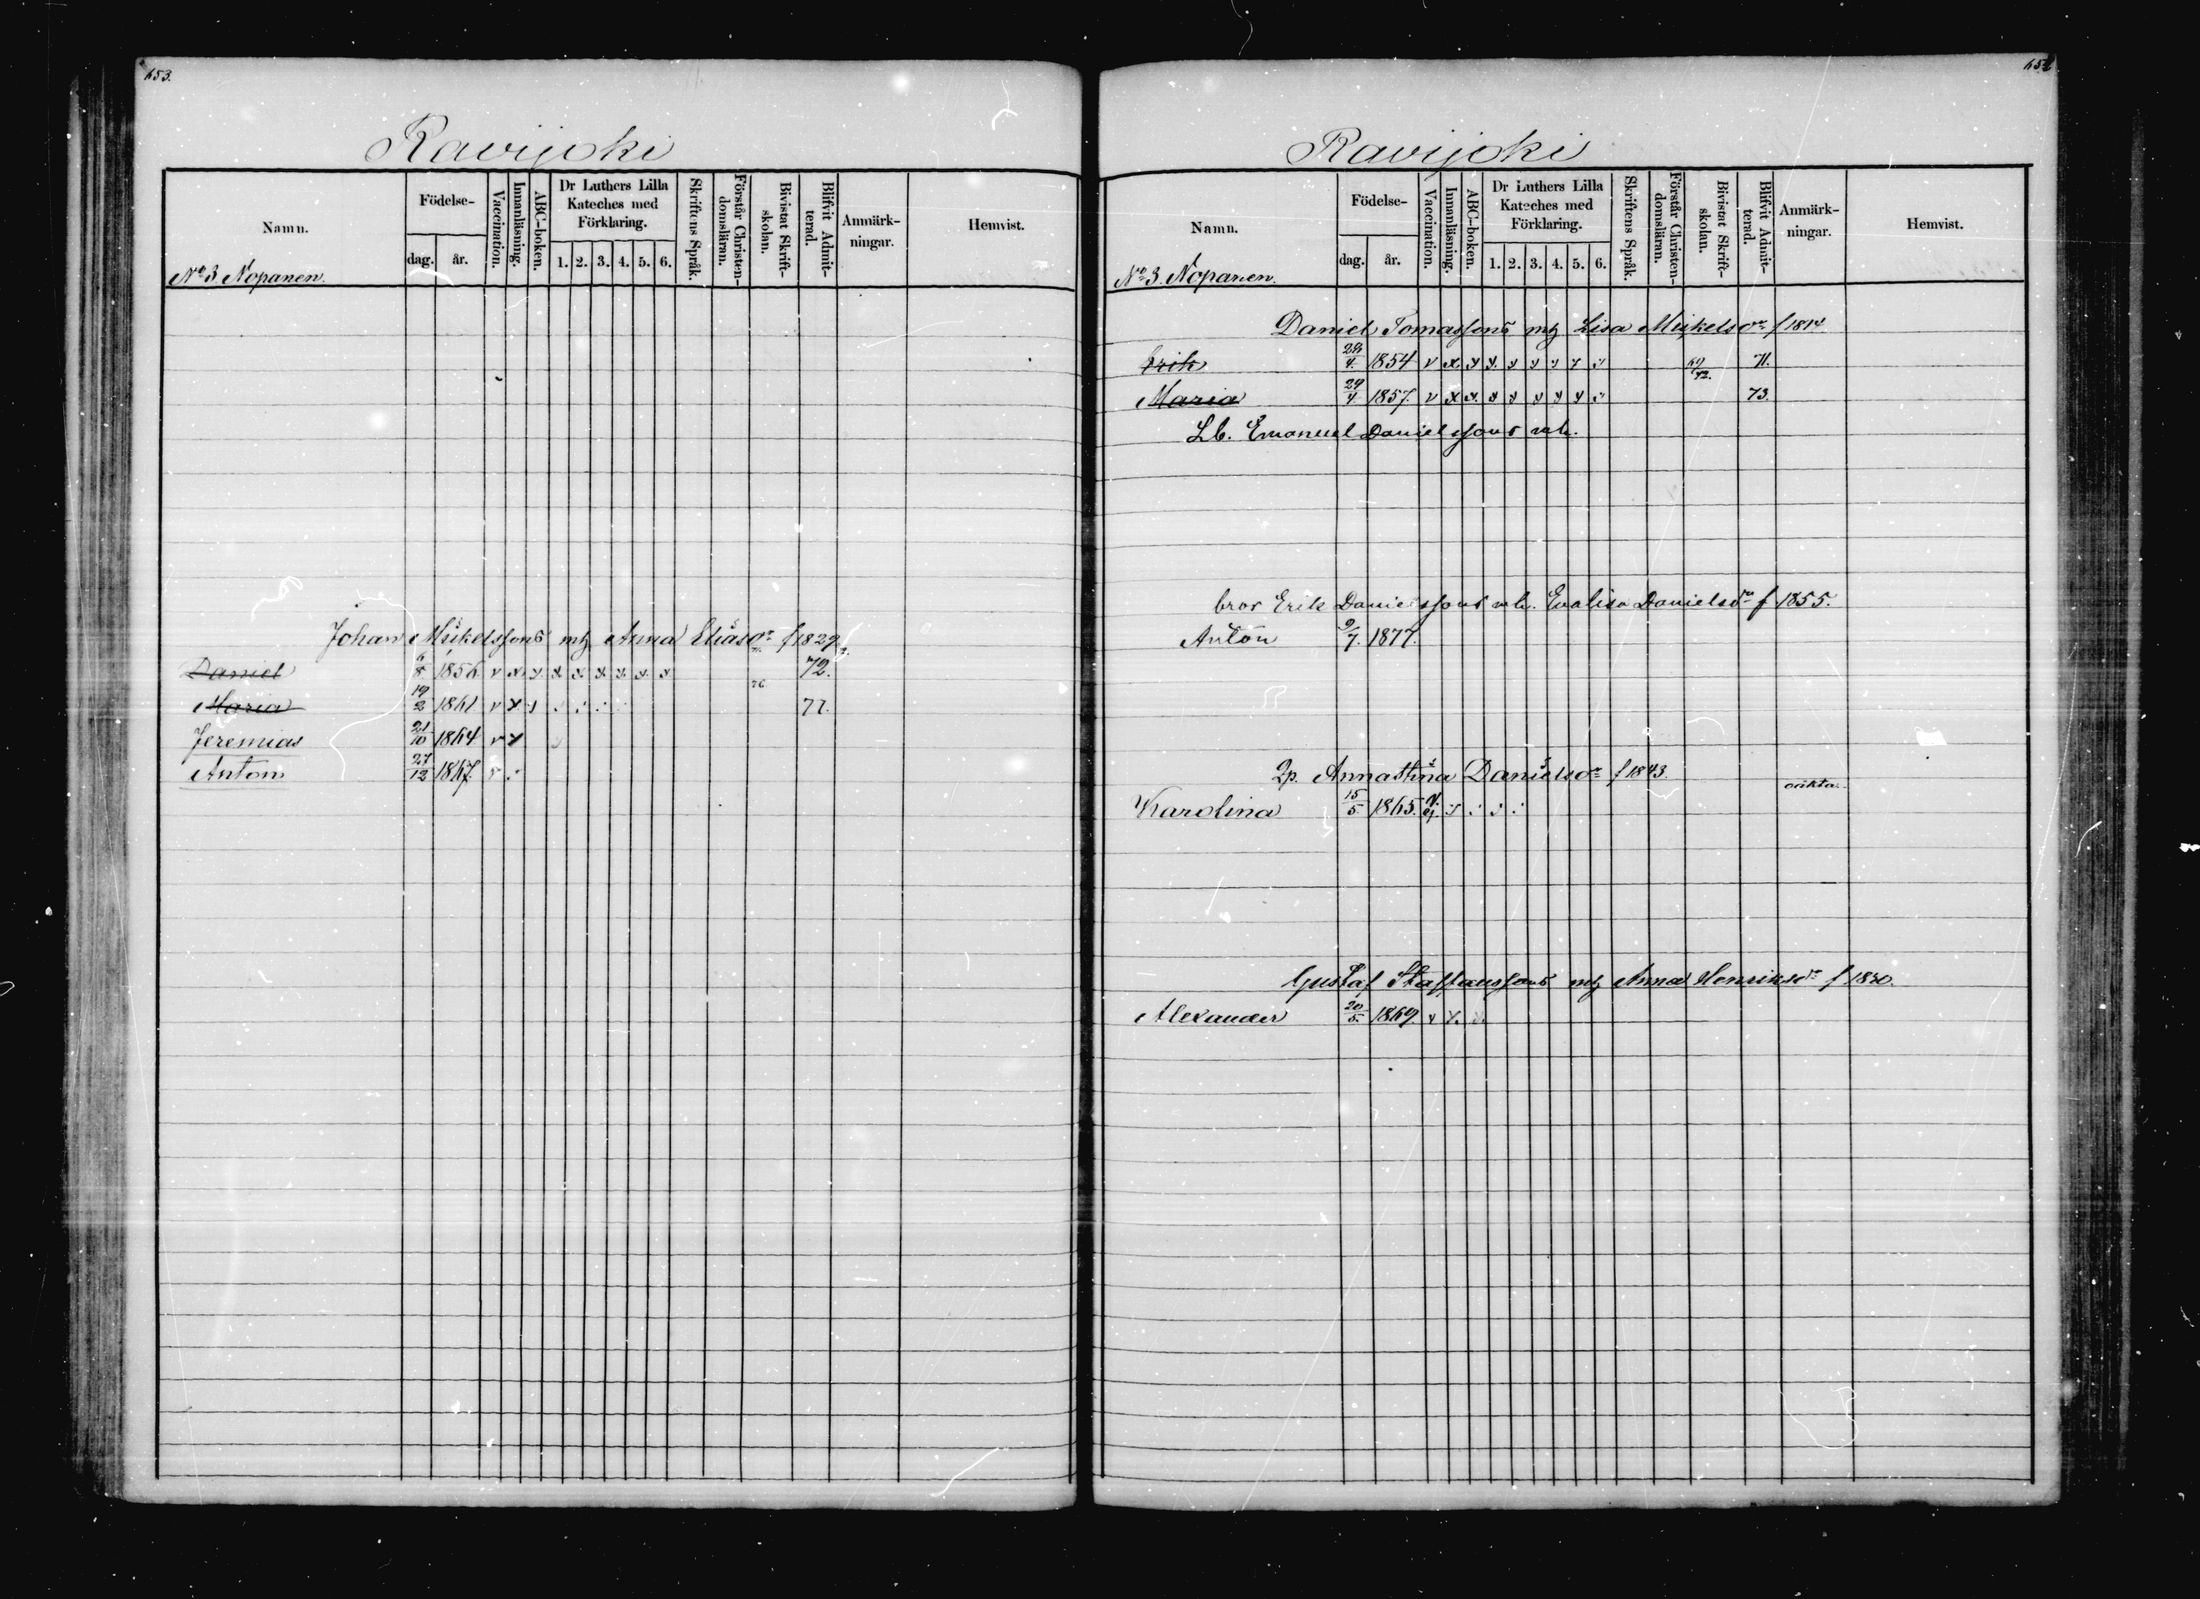 653.
Ravijoki
Namn. Födelse- dag. år. Vaccination. Innanläsning. ABC-boken. Dr Luthers Lilla Kateches med Förklaring. 1. 2. 3. 4. 5. 6. Skriftens Språk. Förstår Christen-domsläran. Bivistat Skrift-skolan. Blifvit Admit-terad. Anmärk-ningar. Hemvist.
No 3 Nopanen.
Johan Mikelssons mh Anna Eliasdr f 1829
Daniel 6/8 1856. v x x x x x x x x 72.
Maria 19/2 1861 v x x 76 77.
Jeremias 21/10 1864 v x
Anton 27/12 1867.
654
Ravijoki
Namn. Födelse- dag. år. Vaccination. Innanläsning. ABC-boken. Dr Luthers Lilla Kateches med Förklaring. 1. 2. 3. 4. 5. 6. Skriftens Språk. Förstår Christen-domsläran. Bivistat Skrift-skolan. Blifvit Admit-terad. Anmärk-ningar. Hemvist.
No 3. Nopanen.
Daniel Tomassons mh Lisa Mikelsdr f 1814
Erik 1854 v x x x x x x x x 71.
Maria 29/4 1857. v x x x x x x x x 73.
Lb. Emanuel Danielssons mh.
bror Erik Danielssons mh. Evalisa Danielsdr f 1855.
Anton 9/7. 1877.
Qp. Annastina Danielsdr f 1843.
oäkta
Karolina 15/5 1865.
Gustaf Staffanssons mh Anna Henriksdr f 1830.
Alexander 20/5. 1869. v x. x.